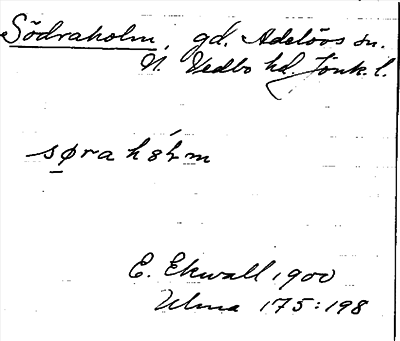 Södraholm, gd. Adelövs sn.
N. Vedbo hd. Jönk. l.
sørahólm
E. Ekwall 1900
Ulma 175:198